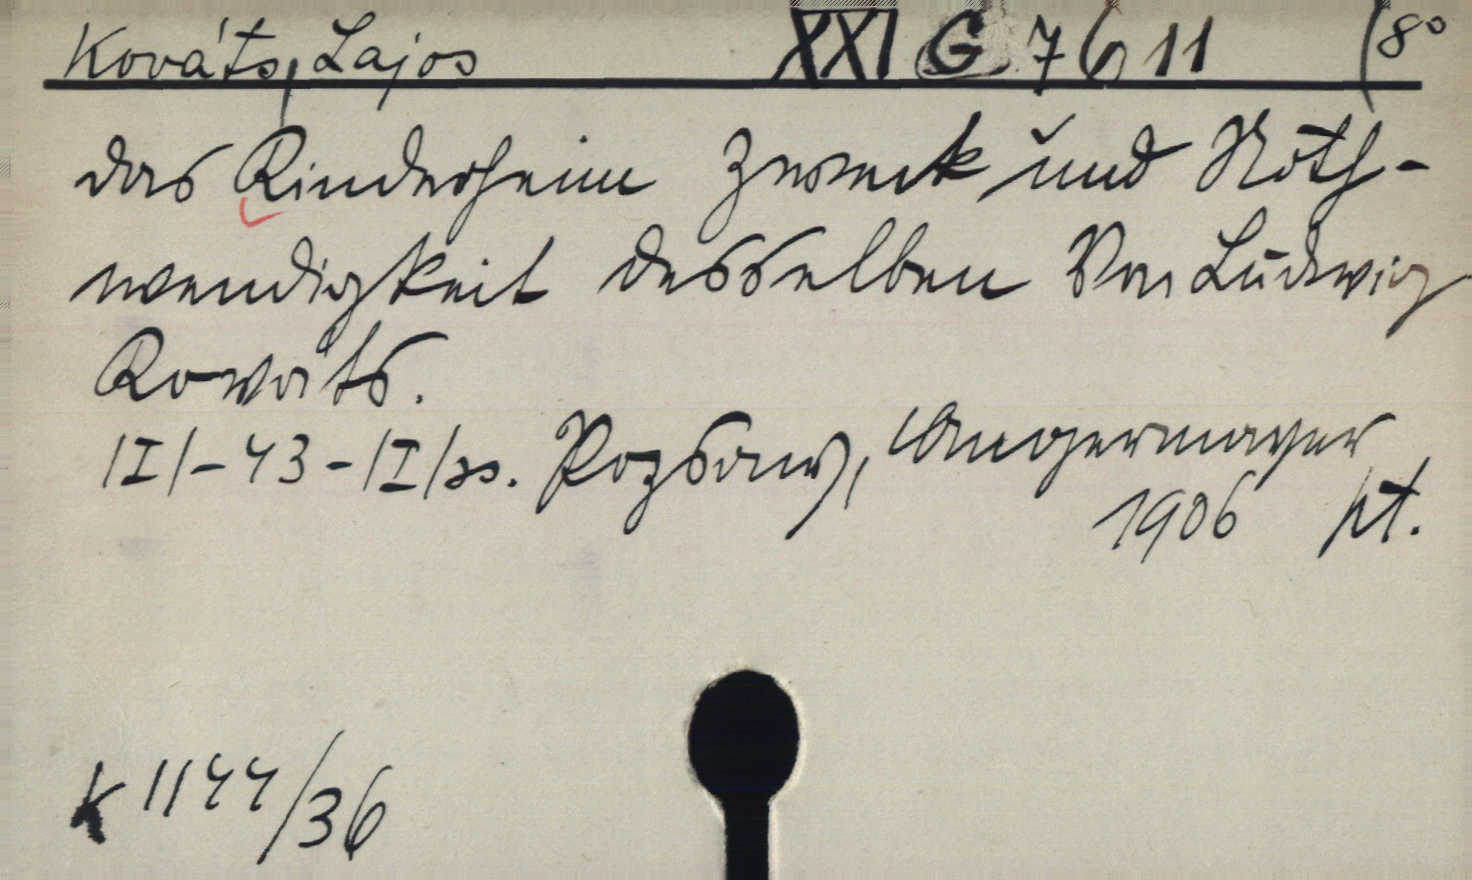 Kováts, Lajos XXI G 7611 (8°
Das Kinderheim Zweck und Noth-
wendigkeit desselben Von Ludwig
Kováts.
|I|-43-|I|ss. Pozsony, Angermayer
1906 kt.
K 1144/36